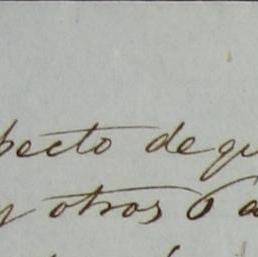 pecto de qu
y otros 6 a